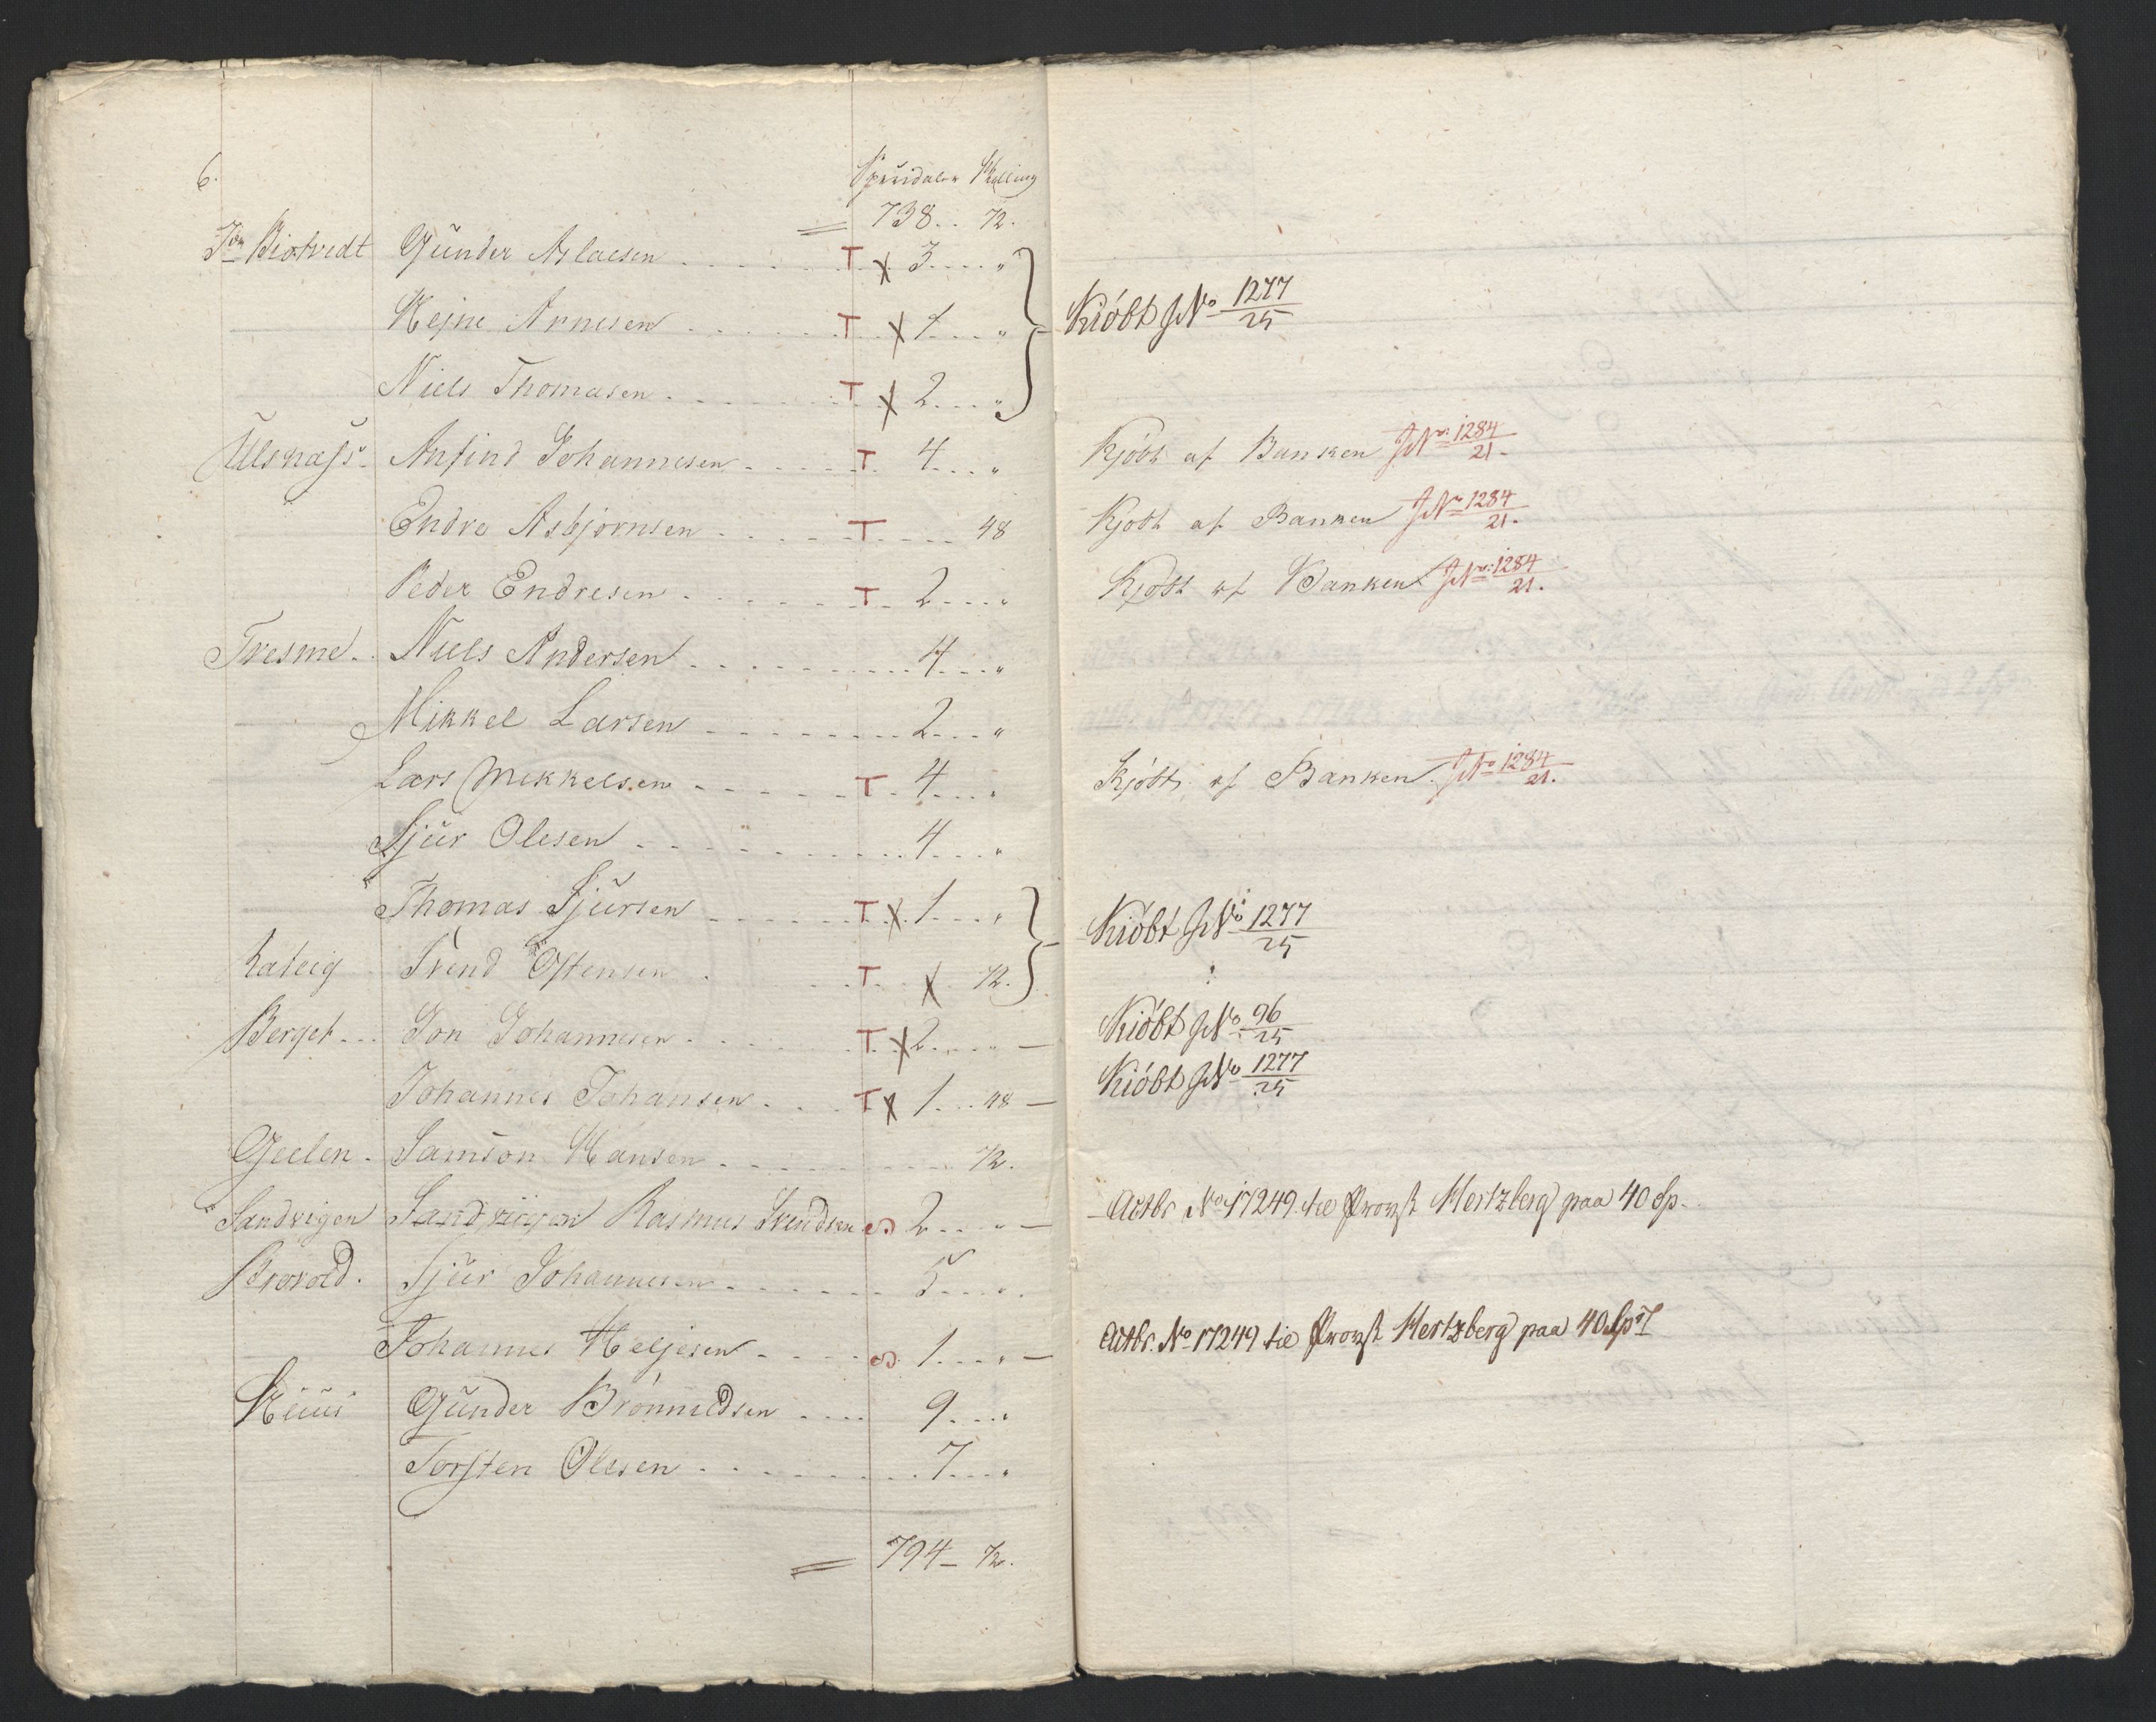 6.
Speciedaler Skilling
= 738.. 72.
Gunder Aslacsen T x 3 "
Heine Arnesen T x 1 "
Niels Thomasen T x 2 "
Kiöbt J No 1277/25
Ulsnæss. Anfind Johannesen T 4 "
Kjöbt af Banken J No 1284/21.
Endre Asbjörnsen T 48
Kjöbt af Banken J No 1284/21.
Peder Endresen T 2 "
Kjöbt af Banken J No 1284/21.
Tvesme. Niels Andersen 4 "
Mikkel Larsen 2 "
Lars Mikkelsen T 4 "
Kjöbt af Banken. J No 1284/21.
Sjur Olesen 4 "
Thomas Sjursen T x 1 "
Svend Östensen T x 72.
Kiöbt J No 1277/25
Berget Jon Johannesen T x 2 " —
Kiöbt J No 96/25
Johannes Johansen T x 1 48 —
Kiöbt J No 1277/25
Geelen. Samson Hansen 72.
Sandvigen Sandviigen Rasmus Svendsen 2 " —
Actbr. No 17249 til Provst Hertzberg paa 40 Sp.
Sjur Johannesen 5 "
Johannes Heljesen 1 " —
Actbr. No 17249 til Provst Hertzberg paa 40 Sp
Huus Gunder Brönnildsen 9 "
Torsten Olesen 7 "
= 794 - 72.